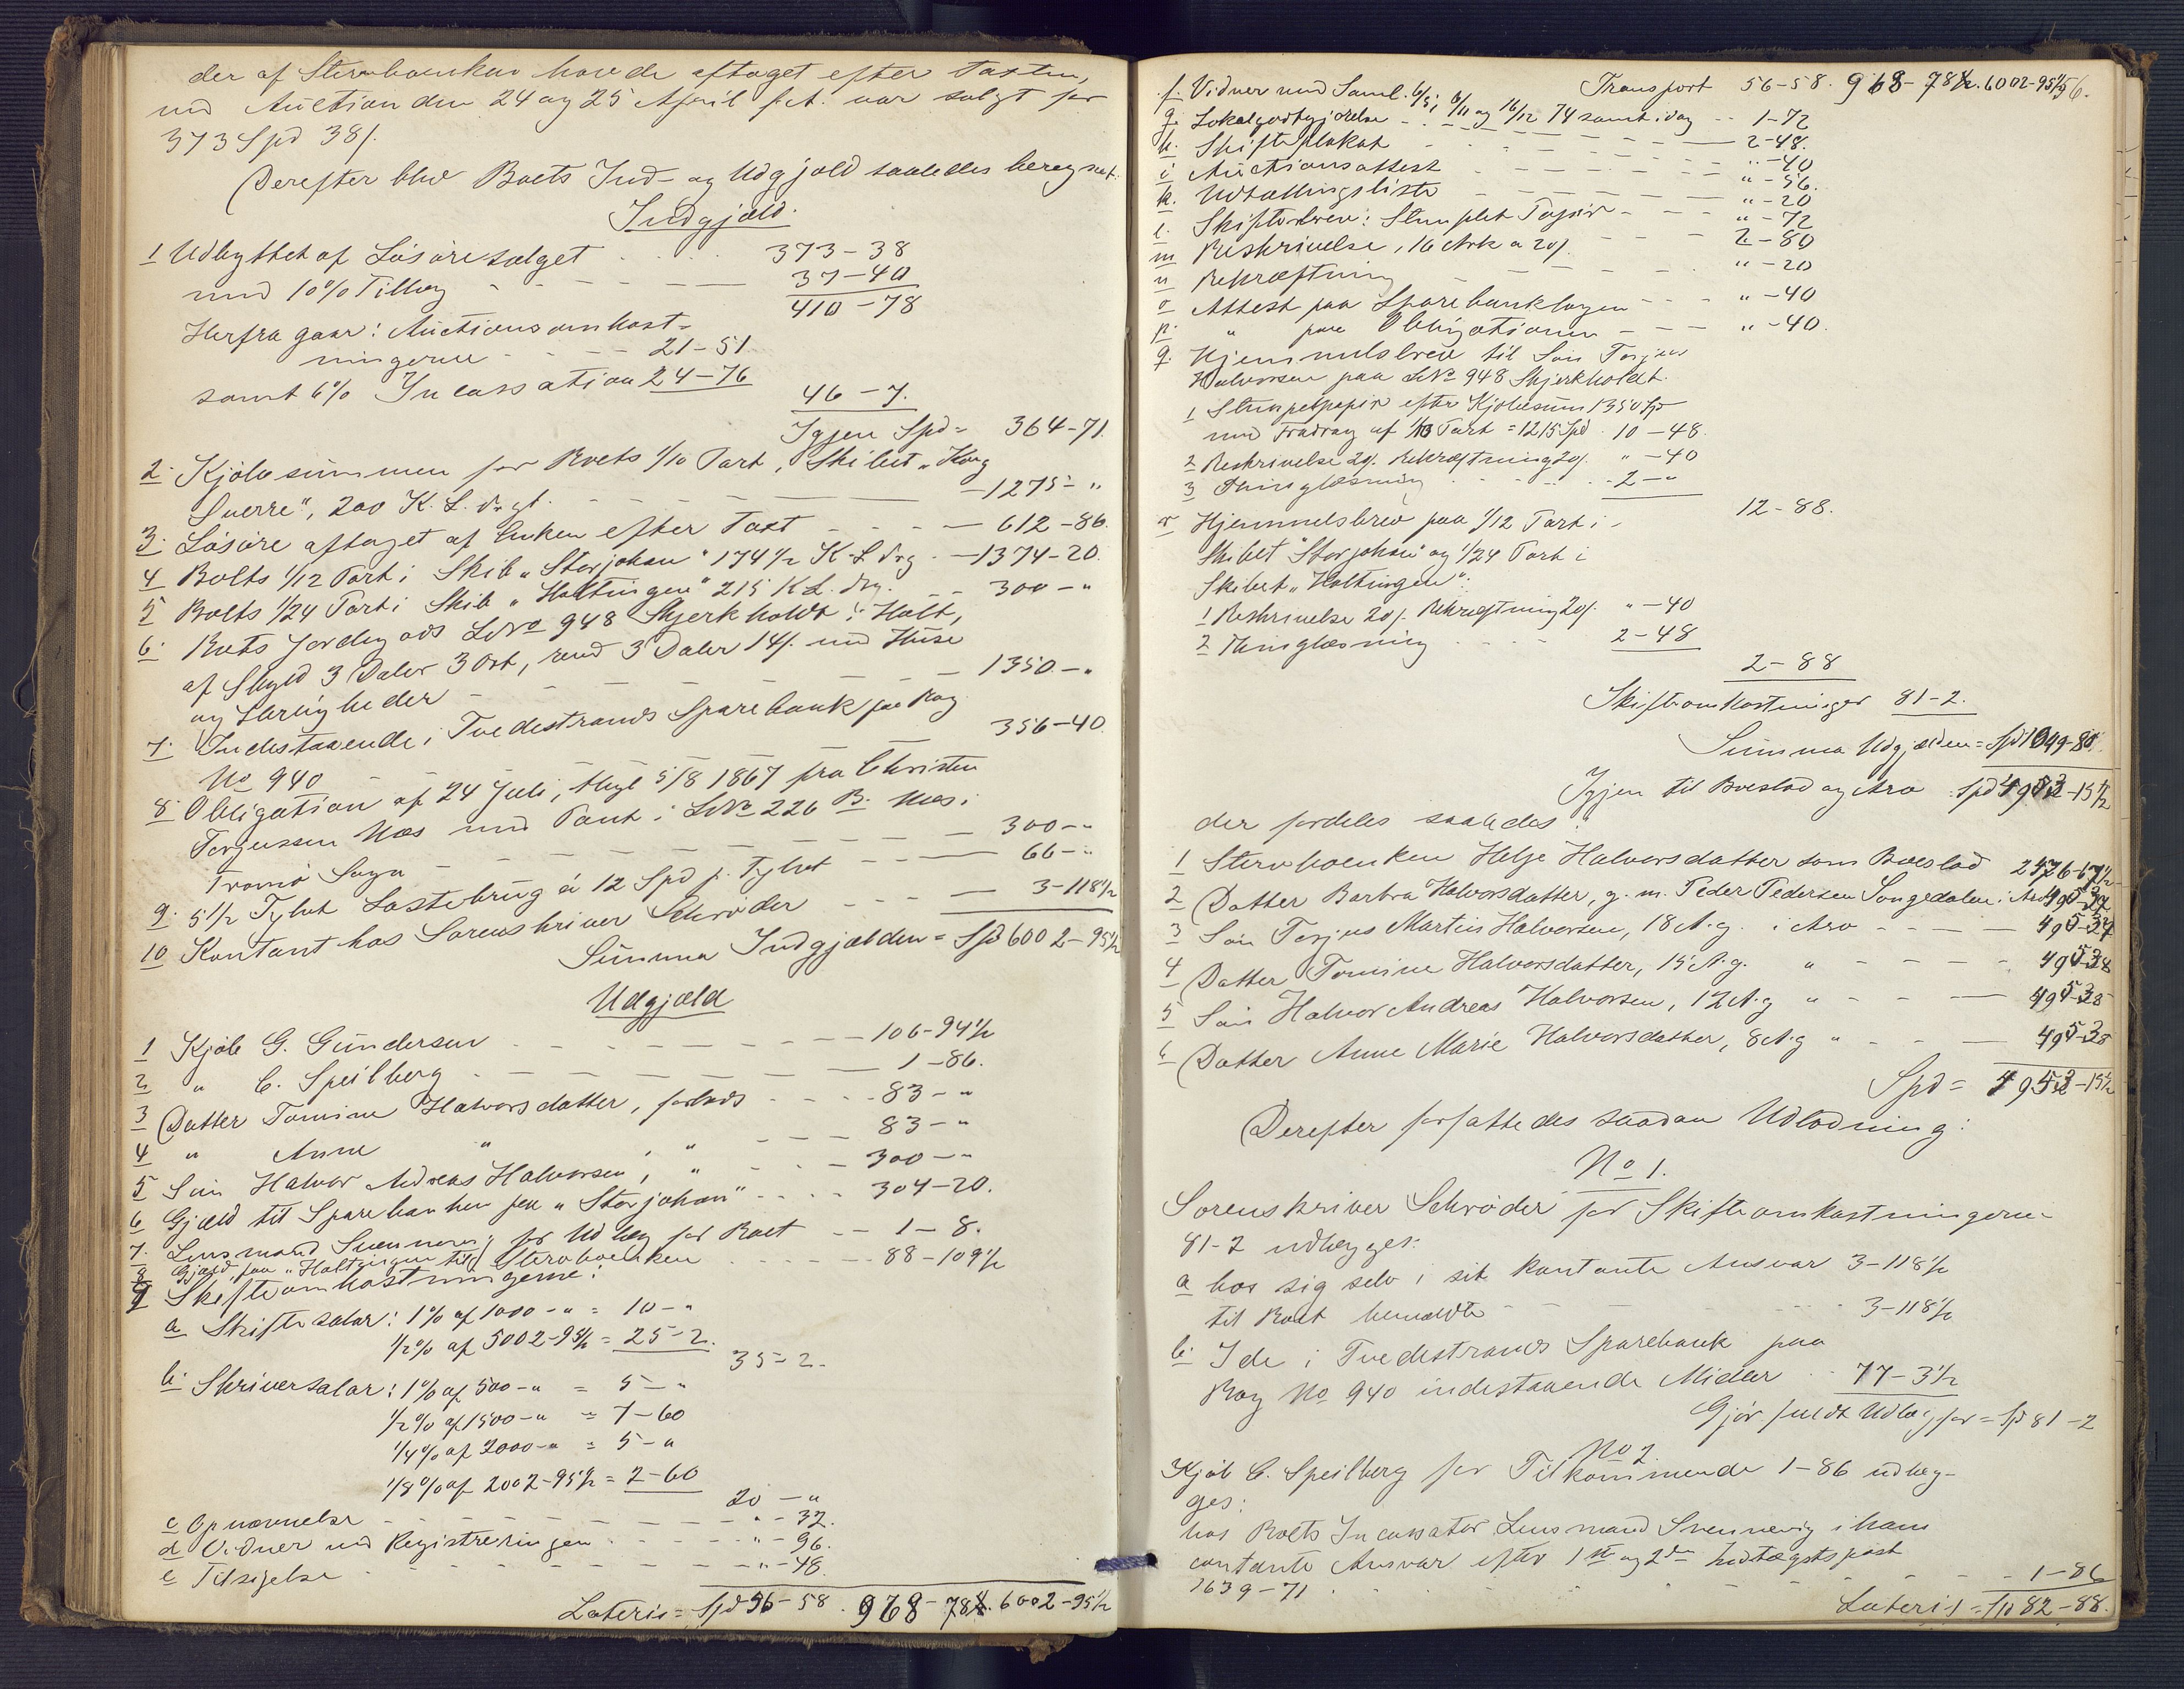 der af Stervboenken havde aftaget efter Taxten,
ved Auction den 24 og 25 April f.A. var solgt for
373 Spd 38 /.
Derefter blev Boets Ind- og Udgjæld saaledes beregnet.
Indgjæld.
1 Udbyttet af Løsøresalget 373-38
med 10% Tillæg 37-40
410-78
Herfra gaar: Auctionsomkost-
ningerne 21-51
samt 6% Incassation 24-76
46-7.
Igjen Spd = 364-71.
2. Kjøbesummen for Boets 1/10 Part i Skibet "Kong
Sverre", 200 K. L. drgt. 1275-"
3. Løsøre aftaget af Enken efter Taxt 612-86.
4 Boets 1/12 Part i Skib "Storjohan" 174 1/2 K.L. drg 1374-20.
5 Boets 1/24 Part i Skib "Holtingen" 215 K.L. drg. 300-"
6. Boets Jordegods LNo 948 Skjerkholdt i Holt,
af Skyld 3 Daler 3 Ort, revd 3 Daler 14 /. med Huse
og Herligheder 1350-"
7. Indestaaende i Tvedestrands Sparebank paa Bog
No 940 356-40.
8. Obligation af 24 Juli, thgl 5/8 1867 fra Christen
Terjussen Næs med Pant i LNo 226 B. Næs i
Tromø Sogn 300-"
9. 5 1/2 Tylvt Lastebrug á 12 Spd p. Tylvt 66-"
10 Kontant hos Sorenskriver Schrøder 3-118 1/2
Summa Indgjælden = Spd 6002-95 1/2
Udgjæld
1 Kjøb G. Gundersen 106-94 1/2
2 " C. Speilberg 1-86.
3 Datter Tomine Halvorsdatter, forlods 83-"
4 " Anne " " 83-"
5 Søn Halvor Andreas Halvorsen, " 300-"
6 Gjæld til Sparebanken paa "Storjohan" 304-20.
7. Lensmand Svennevig for Udlæg for Boet 1-8.
8 Gjæld paa "Holtingen" til Stervboenken 88-109 1/2
9 Skifteomkostningerne:
a Skiftesalær: 1% af 1000-" = 10-"
1/2% af 5002-95 1/2 = 25-2.
35-2.
b. Skriversalær: 1% af 500-" = 5-"
1/2% af 1500-" = 7-60
1/4% af 2000-" = 5-"
1/8% af 2002-95 1/2 = 2-60
20-"
c Opnævnelse "-32.
d Vidner ved Registreringen "-96.
e Tilsigelse "-48.
Lateris = Spd 56-58. 968-78 1/2. 6002-95 1/2
Transport 56-58. 968-78 1/2. 6002-95 1/2
f. Vidner ved Saml. 6/5, 6/11 og 16/12 74 samt idag 1-72
g. Lokalgodtgjørelse 2-48.
h. Skifteplakat "-40
i Auctionsattest "-56.
k. Udtællingsliste "-20
l. Skiftebrev: Stemplet Papir "-72
m Beskrivelse, 16 Ark a 20 /. 2-80
n Bekræftning "-20
o Attest paa Sparebankbogen "-40
p. " paa Obligationen "-40.
q. Hjemmelsbrev til Søn Terjus
Halvorsen paa LNo 948 Skjerkholdt.
1 Stempelpapir efter Kjøbesum 1350 Spd
med Fradrag af 1/10 Part = 1215 Spd 10-48.
2 Beskrivelse 20 /. Bekræftning 20 /. "-40
3 Thinglæsning 2-"
12-88.
r Hjemmelsbrev paa 1/12 Part i
Skibet "Storjohan" og 1/24 Part i
Skibet "Holtingen":
1 Beskrivelse 20 /. Bekræftning 20 /. "-40
2 Thinglæsning 2-48
2-88
Skifteomkostninger 81-2.
Summa Udgjælden = Spd 1049-80.
Igjen til Boeslod og Arv Spd 4953-15 1/2
der fordeles saaledes:
1 Stervboenken Helje Halvorsdatter som Boeslod 2476-67 1/2
2 Datter Barbra Halvorsdatter, g. m. Peder Pedersen Songedalen i Arv 495-37
3 Søn Terjus Martin Halvorsen, 18 A. g. i Arv 495-37
4 Datter Tomine Halvorsdatter, 15 A. g. " 495-38
5 Søn Halvor Andreas Halvorsen, 12 A. g " 495-38
6 Datter Anne Marie Halvorsdatter, 8 A. g " 495-38
Spd = 4953-15 1/2
Derefter forfattedes saadan Udlodning:
No 1.
Sorenskriver Schrøder for Skifteomkostningerne
81-2 udlægges:
a hos sig selv i sit kontante Ansvar 3-118 1/2
til Boet benævnte 3-118 1/2
b. I de i Tvedestrands Sparebank paa
Bog No 940 indestaaende Midler 77-3 1/2
Gjør fuldt Udlæg for = Spd 81-2
No 2.
Kjøb C. Speilberg for Tilkommende 1-86 udlæg-
ges:
hos Boets Incassator Lensmand Svennevig i hans
contante Ansvar efter 1ste og 2den Indtægtspost
1639-71 1-86
Lateris = Spd 82-88.